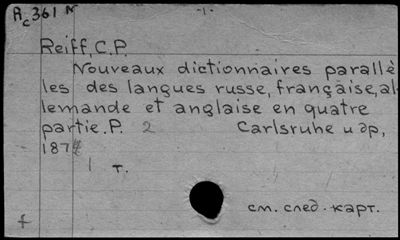 Rc361 N -1-
Reiff, C.P.
Nouveaux dictionnaires parallè
les des langues russe, française, al-
lemande et anglaise en quatre
partie. P. 2 Carlsruhe и др,
187
1 т.
см. след. карт.
f